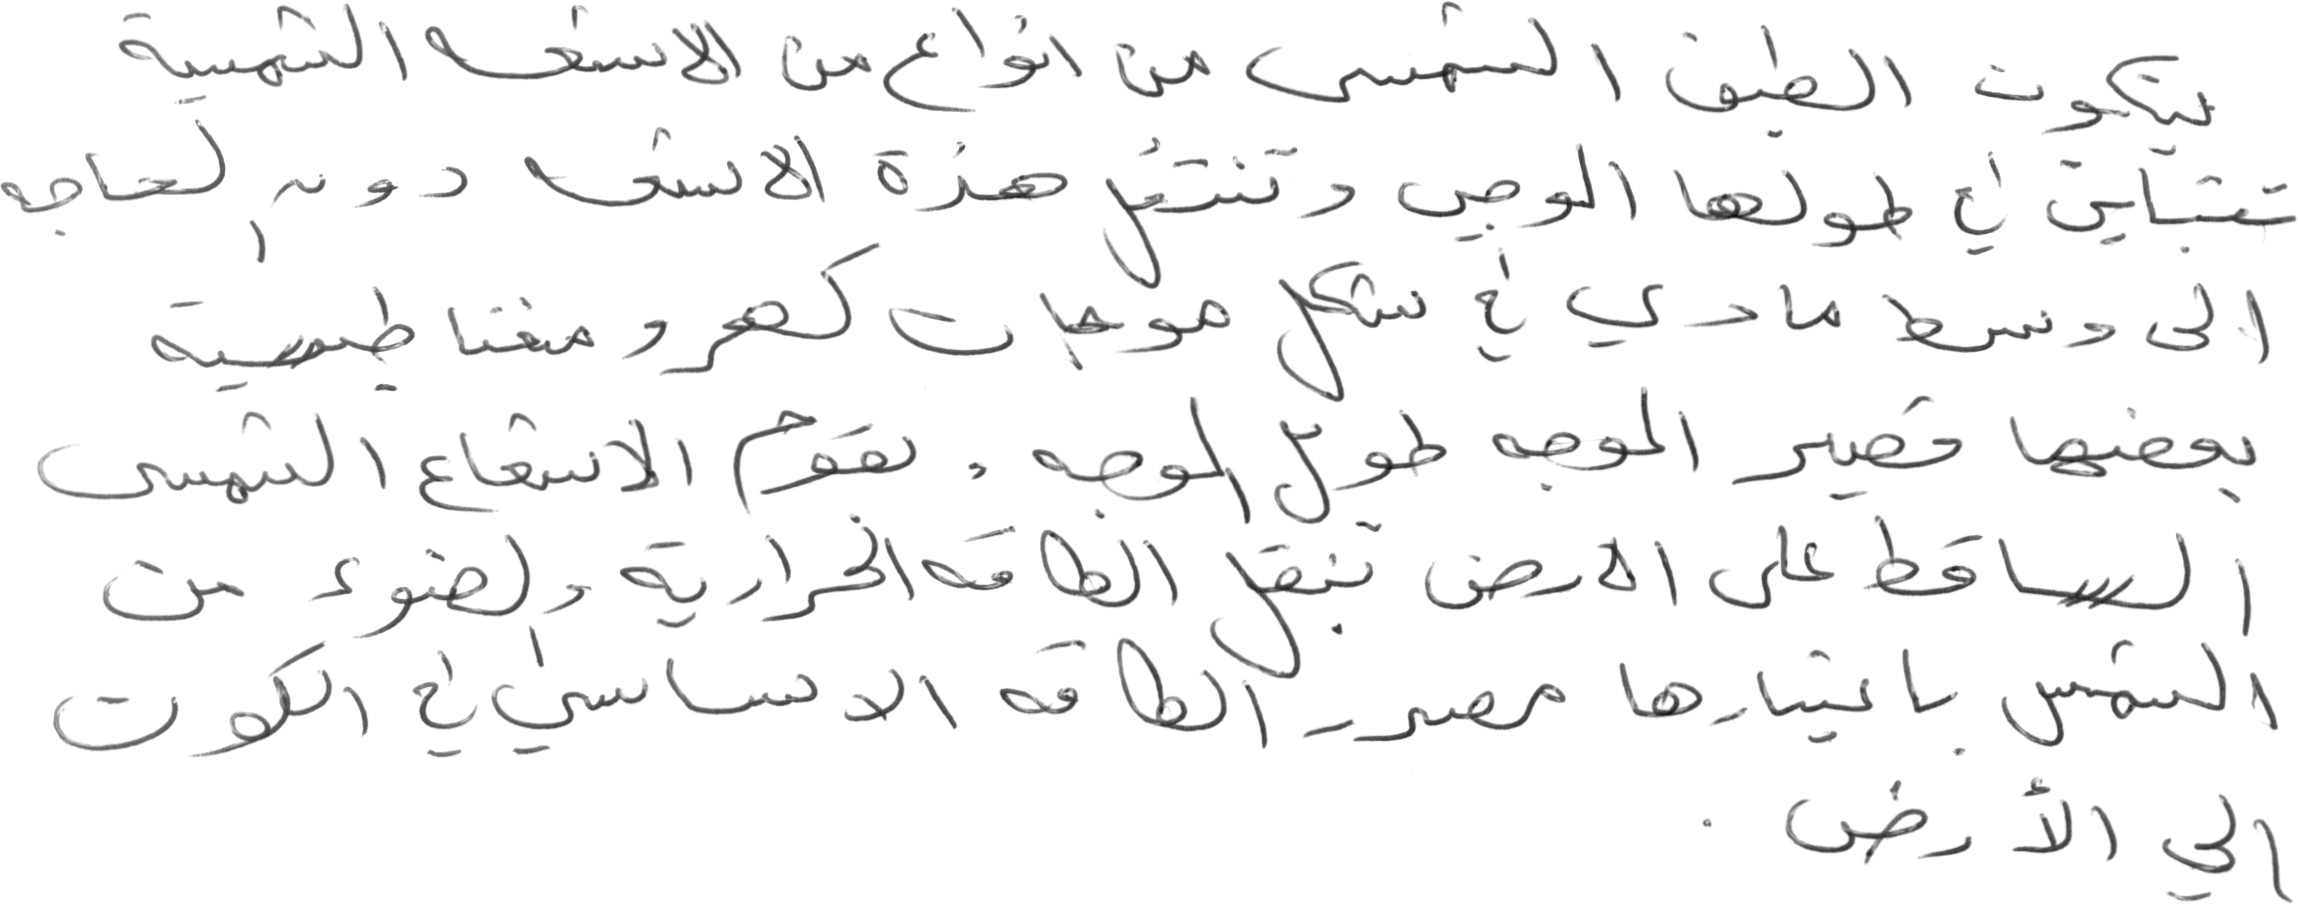 يتكون الطيف الشمسى من انواع من الاشعه الشمسية
تتباين في طولها الموجي و تنتقل هذة الاشعه دون الحاجه
الى وسط مادي في شكل موجات كهرومغناطيسية
بعضها قصير الموجه طويل الموجه . يقوم الاشعاع الشمسى
الساقط على الارض بنقل الطاقه الحرارية والضوء من
الشمس باعتبارها مصدر الطاقه الاساسي في الكون
الي الأرض .